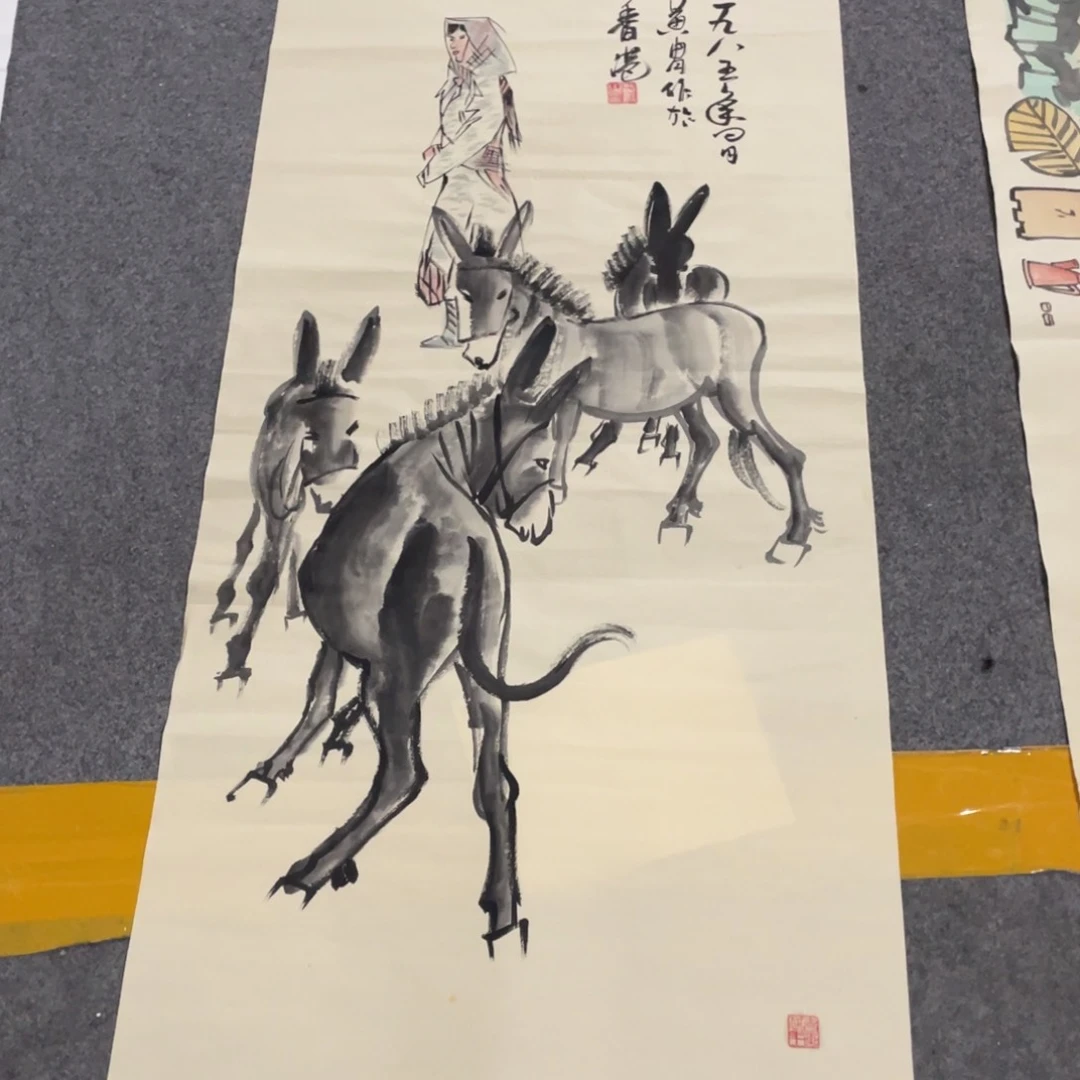 九八五年四月
黄胄作於
香港